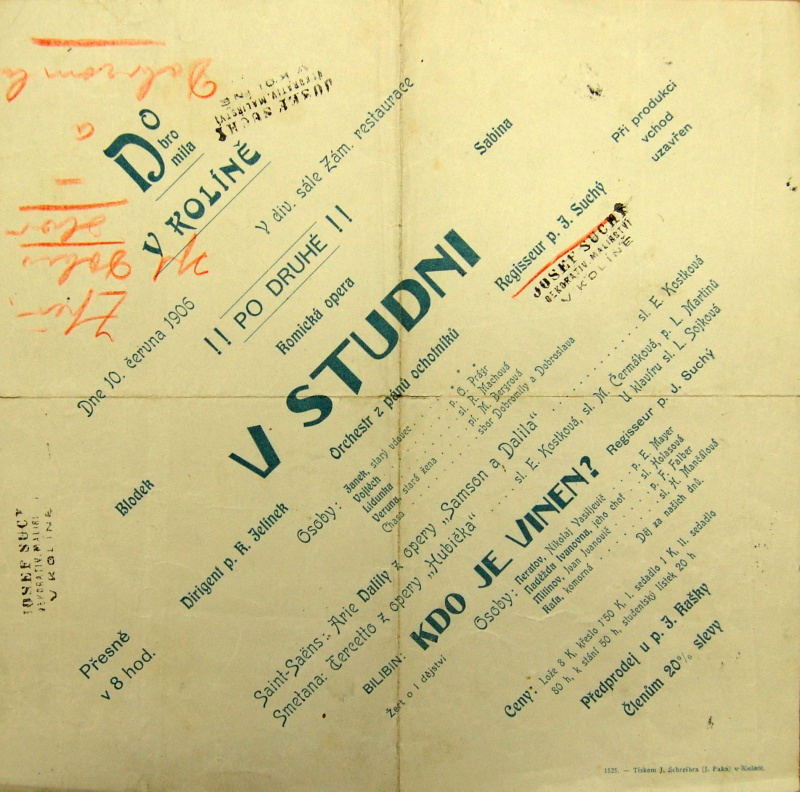 Dobromila
V KOLÍNĚ
Dne 10. června 1906
V div. sále Zám. restaurace
!! PO DRUHÉ !!
Komická opera
Blodek
V STUDNI
Sabina
Dirigent p. K. Jelínek
Orchestr z pánů ochotníků
Regisseur p. J. Suchý
Při produkci
vchod
uzavřen
Přesně
v 8 hod.
Osoby:
Janek, starý vdovec . . . . p. O. Prášr
Vojtěch . . . . sl. R. Machová
Lidunka . . . . pí. M. Bergrová
Veruna, stará žena
Chasa . . . . sbor Dobromily a Dobroslava
Saint-Saëns: Arie Dalily z opery „Samson a Dalila“ . . . . sl. E. Kostková
Smetana: Tercetto z opery „Hubička“ . . . . sl. E. Kostková, sl. M. Čermáková, p. L. Martinů
U klavíru sl. L. Sojková
BILIBIN: KDO JE VINEN? Regisseur p. J. Suchý
Žert o 1 dějství
Osoby:
Neratov, Nikolaj Vasiljevič . . . . p. E. Mayer
Naděžda Ivanovna, jeho choť . . . . sl. Holasová
Milinov, Ivan Ivanovič . . . . p. F. Falber
Kata, komorná . . . . sl. H. Mančálová
Děj za našich dnů.
Ceny: Lože 8 K, křeslo 1·50 K, I. sedadlo 1 K, II. sedadlo
80 h, k stání 50 h, studentský lístek 20 h
Předprodej u p. J. Rašky
Členům 20% slevy
1525. — Tiskem J. Schreibra (J. Paka) v Kolíně.
JOSEF SUCHÝ
DEKORATIV. MALÍŘSTVÍ
V KOLÍNĚ
JOSEF SUCHÝ
DEKORATIV. MALÍŘSTVÍ
V KOLÍNĚ
JOSEF SUCHÝ
DEKORATIV. MALÍŘ
V KOLÍNĚ
a